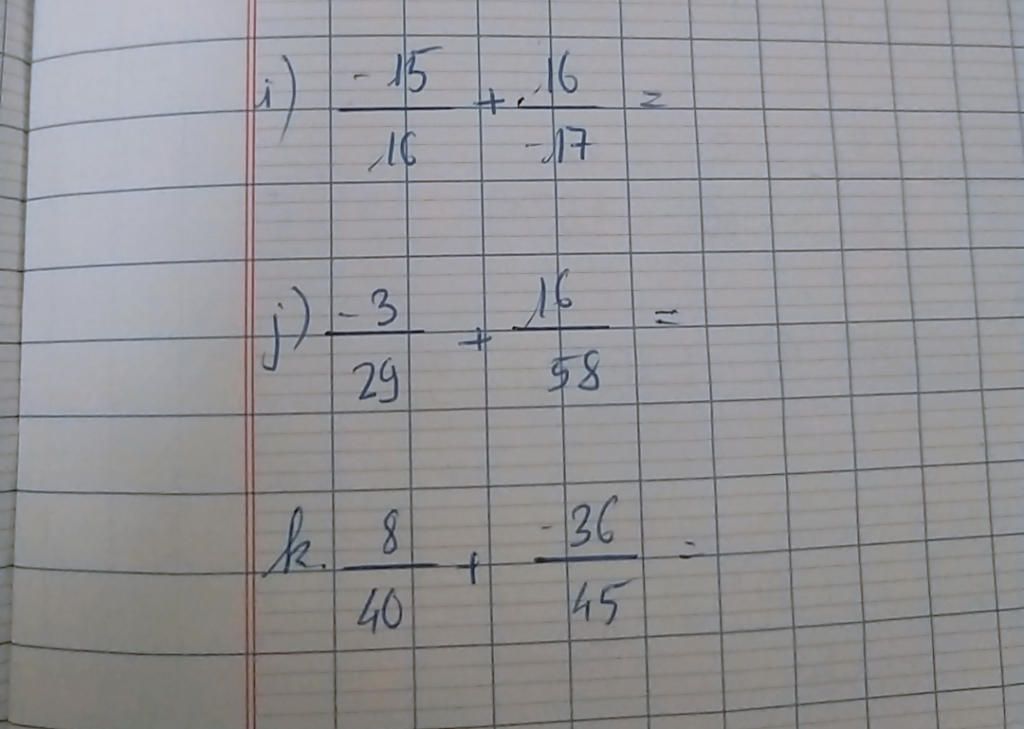 i) -15/16 + 16/-17 =
j) -3/29 + 16/58 =
k. 8/40 + -36/45 =